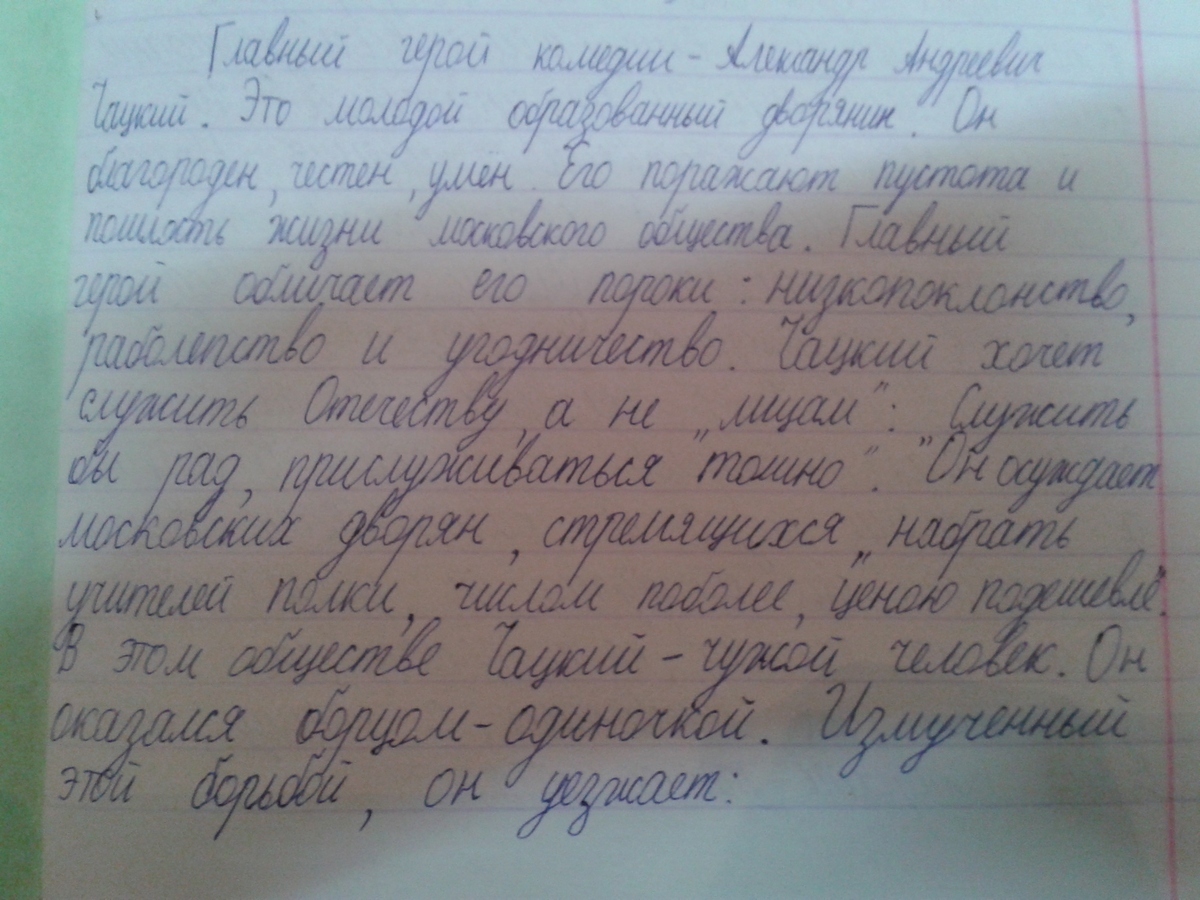 Главный герой комедии - Александр Андреевич
Чацкий. Это молодой образованный дворянин. Он
благороден, честен, умён. Его поражают пустота и
пошлость жизни московского общества. Главный
герой обличает его пороки: низкопоклонство,
раболепство и угодничество. Чацкий хочет
служить Отечеству, а не „лицам": Служить
бы рад, прислуживаться тошно". "Он осуждает
московских дворян, стремящихся „набрать
учителей полки, числом поболее, ценою подешевле".
В этом обществе Чацкий - чужой человек. Он
оказался борцом-одиночкой. Измученный
этой борьбой, он уезжает: